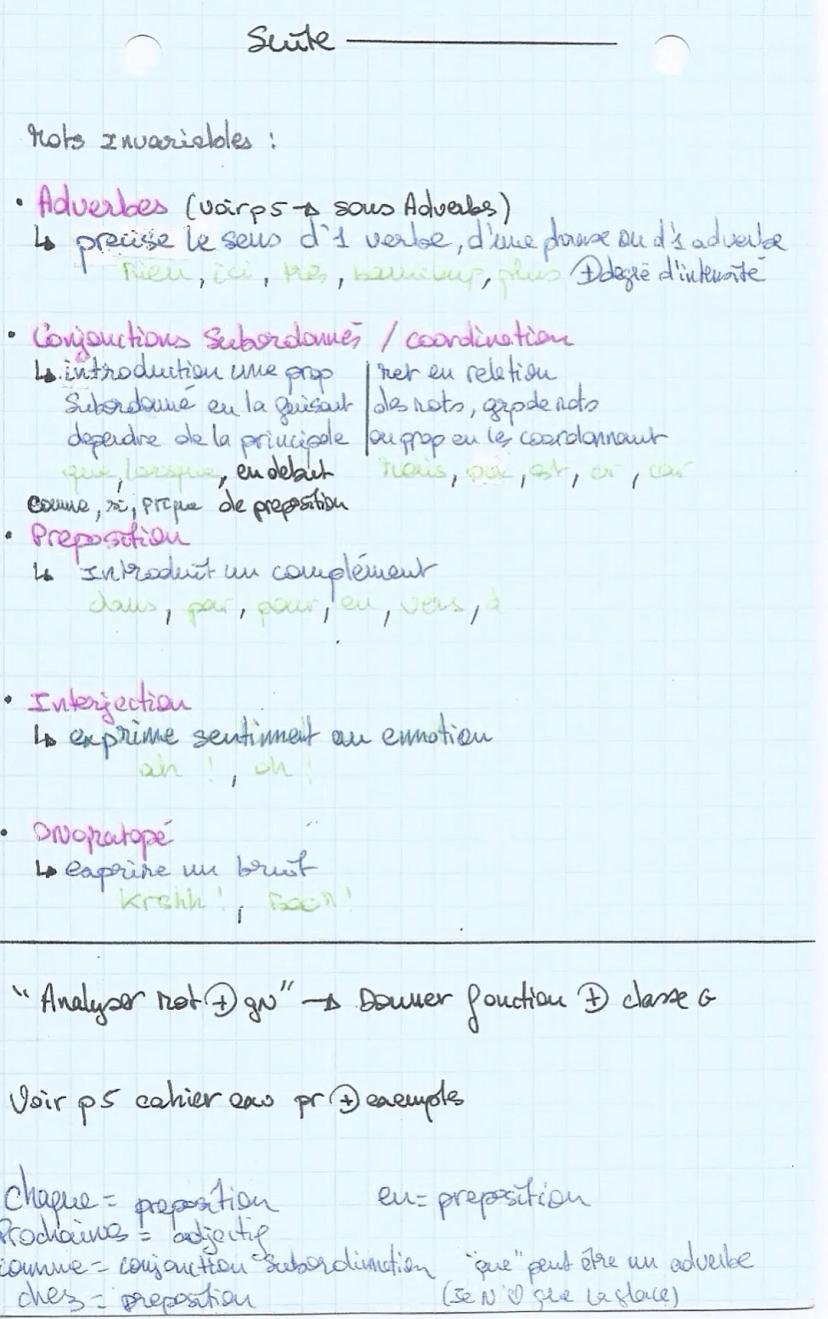 Suite
Mots Invariables :
• Adverbes (voir p5 → sous Adverbs)
↳ precise le sens d'1 verbe, d'une phrase ou d'1 adverbe
rien, ici, très, beaucoup, plus ⊕ degré d'intensité
• Conjonctions Subordonnés / coordination
↳ introduction une prop | met en relation
Subordonné en la faisant | des mots, grp de mots
dependre de la principale | ou prop en les coordonnant
que, lorsque, en debut mais, ou, et, or, car
comme, si, de preposition
• Preposition
↳ Introduit un complément
dans, par, pour, en, vers, à
• Interjection
↳ exprime sentiment ou emmotion
ah !, oh !
• Onopatopé
↳ exprime un bruit
Krshh !, Boom !
"Analyser mot ⊕ gN" → Donner fonction ⊕ classe G
Voir p5 cahier exo pr ⊕ exemples
chaque = preposition en = preposition
Prochaines = adjectif
comme = conjonction subordination "que" peut être un adverbe
chez = preposition (Je N'♡ que la glace)